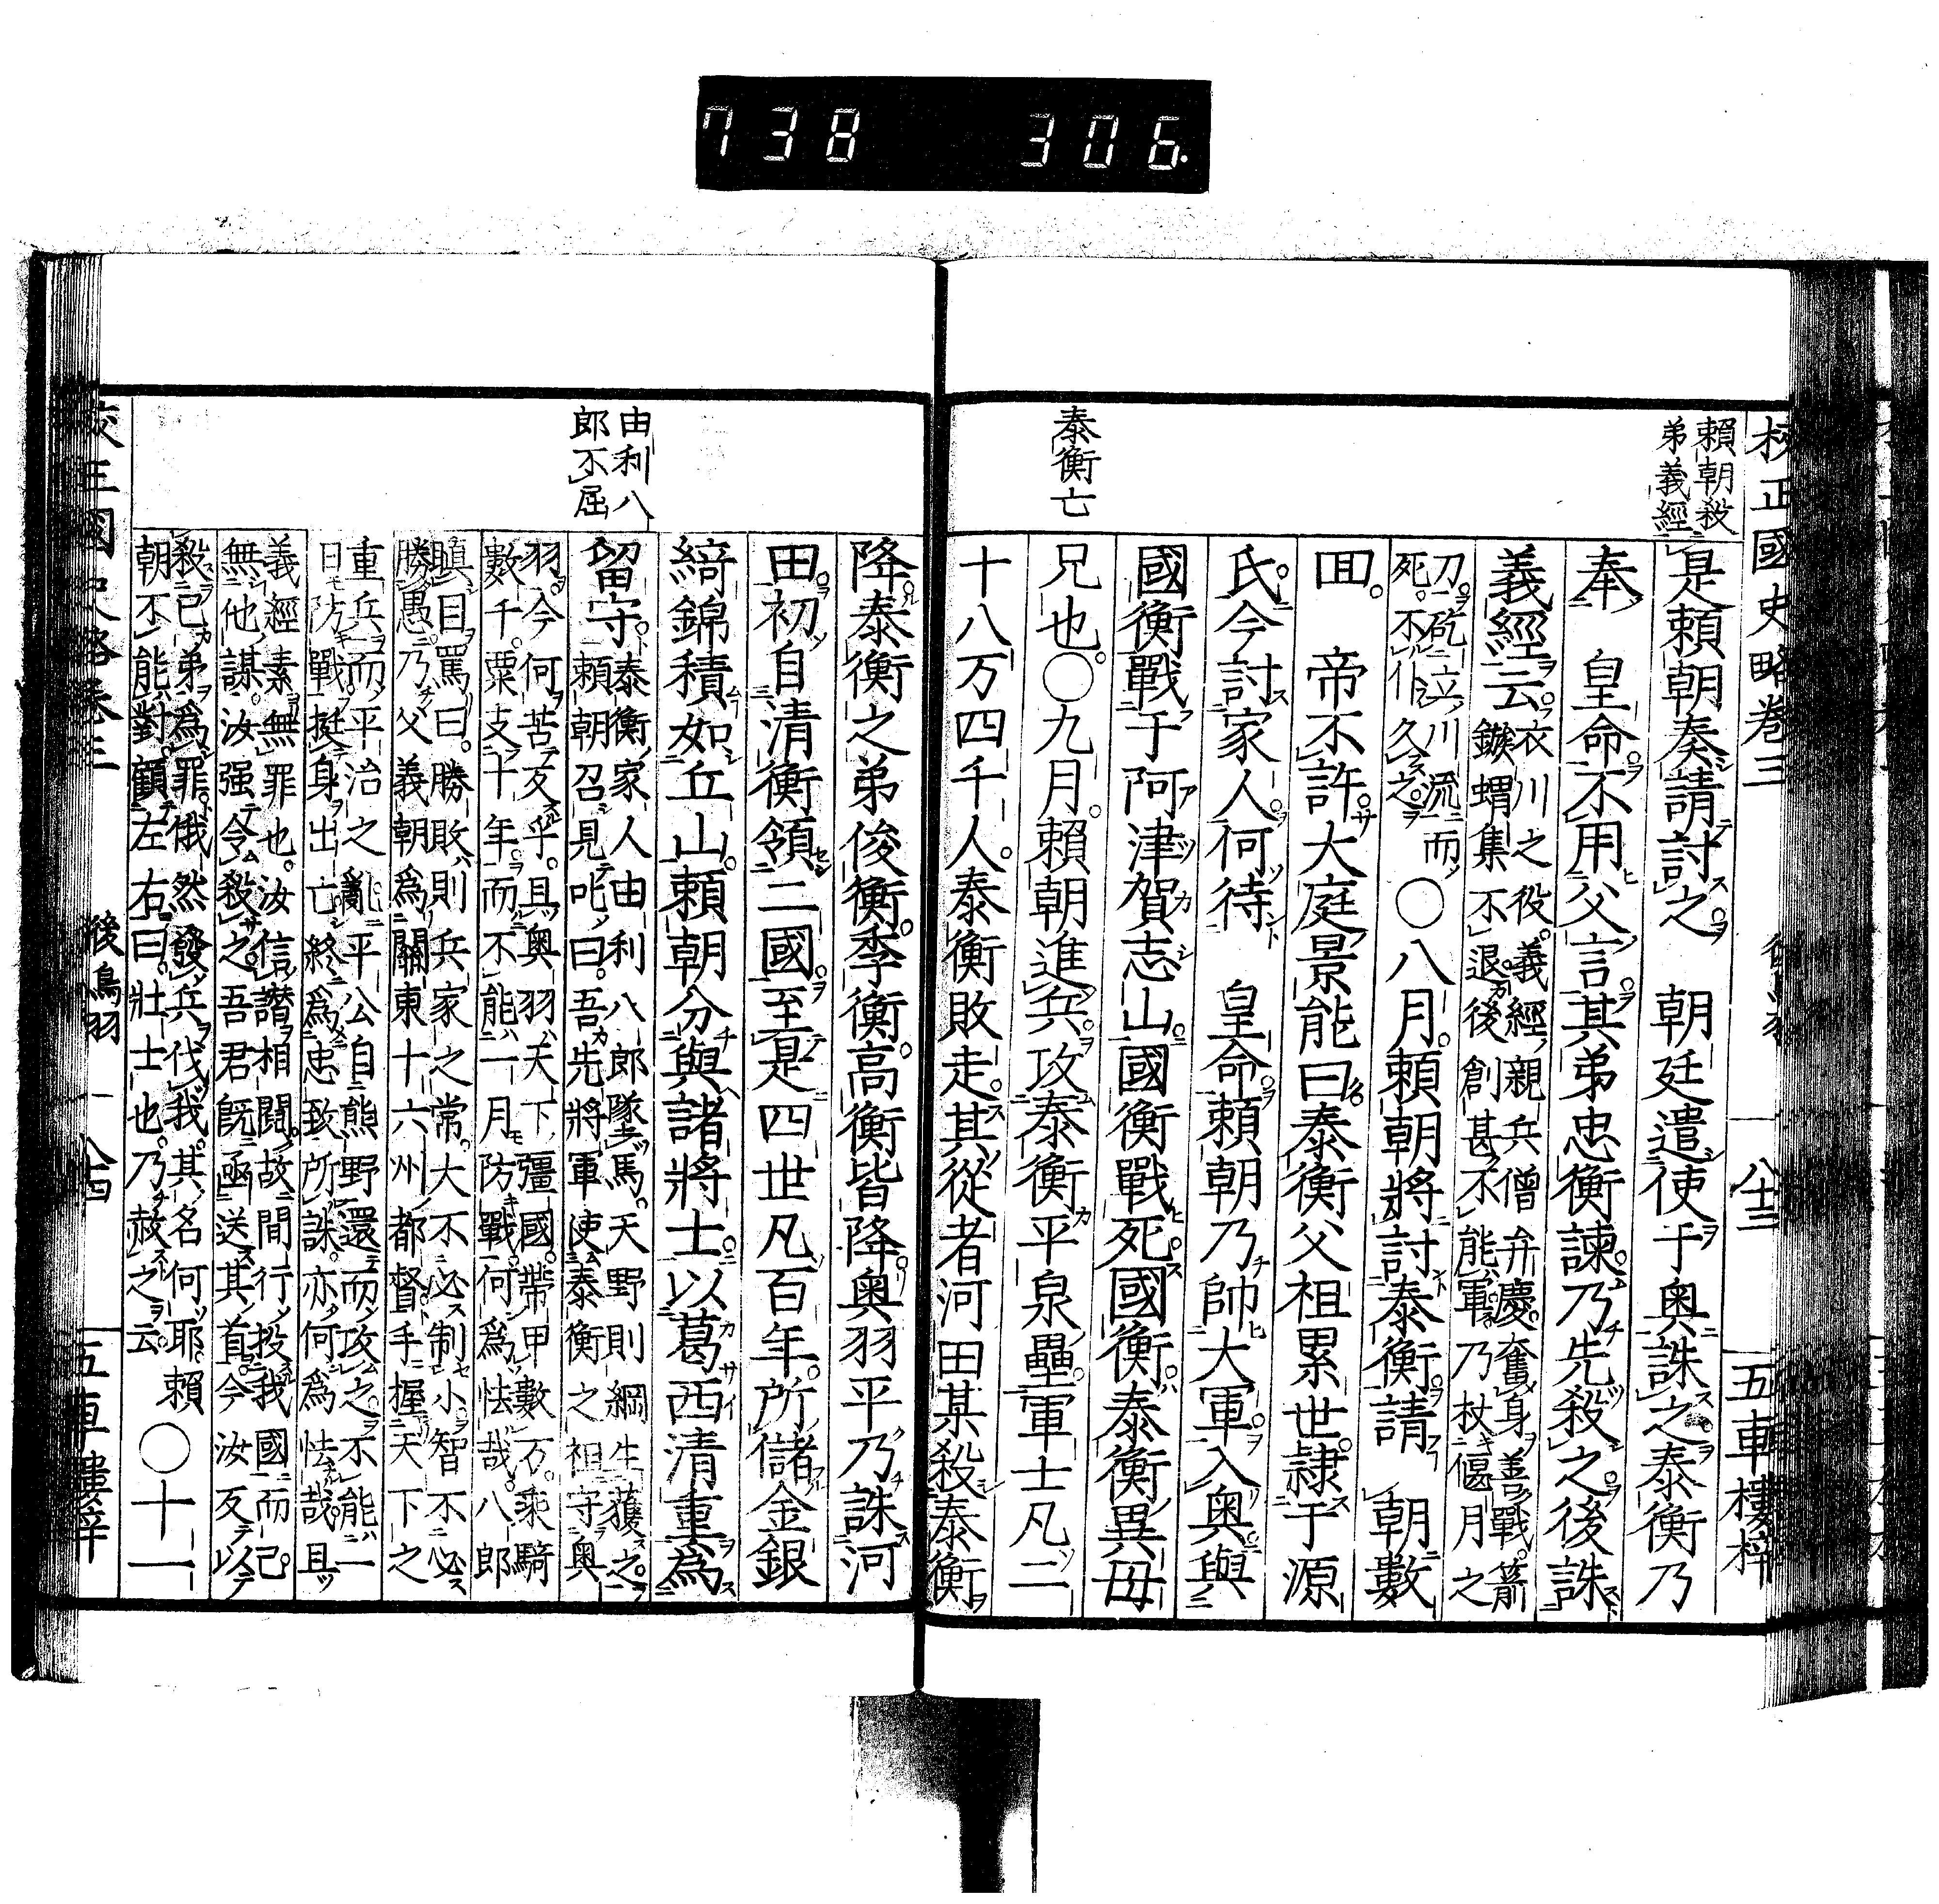 738 306.
校正國史略卷三
八十三
五車樓梓
頼朝殺
弟義經
是頼朝奏請討之　朝廷遣使于奥誅之泰衡乃
奉　皇命不用父言其弟忠衡諫乃先殺之後誅
義經云
衣川之役義經親兵僧弁慶奮身善戰箭
鏃蝟集不退後創甚不能軍乃杖偃月之
刀屹立川流而
死不仆久之
〇八月頼朝將討泰衡請　朝數
回　帝不許大庭景能曰泰衡父祖累世隷于源
氏今討家人何待　皇命頼朝乃帥大軍入奥與
國衡戰于阿津賀志山國衡戰死國衡泰衡異母
泰衡亡
兄也〇九月頼朝進兵攻泰衡平泉壘軍士凡二
十八万四千人泰衡敗走其從者河田某殺泰衡
降泰衡之弟俊衡季衡高衡皆降奥羽平乃誅河
田初自清衡領二國至是四世凡百年所儲金銀
綺錦積如丘山頼朝分與諸將士以葛西清重為
由利八
郎不屈
留守
泰衡家人由利八郎墜馬天野則綱生獲之
頼朝召見叱曰吾先將軍使泰衡之祖守奥
羽今何苦反乎且奥羽天下彊國帶甲數万乘騎
數千粟支十年而不能一月防戰何為怯哉八郎
瞋目罵曰勝敗則兵家之常大不必制小智不必
勝愚乃父義朝為關東十六州都督手握天下之
重兵而平治之亂平公自熊野還而攻之不能二
日防戰挺身出亡終為忠致所誅亦何為怯哉且
義經素無罪也汝信讒相鬩故間行投我國而己
無他謀汝强令殺之吾君既函送其首今汝反以
殺已弟為罪俄然發兵伐我其名何耶頼
朝不能對顧左右曰壯士也乃赦之云
〇十一
後鳥羽
八十四
五車樓梓